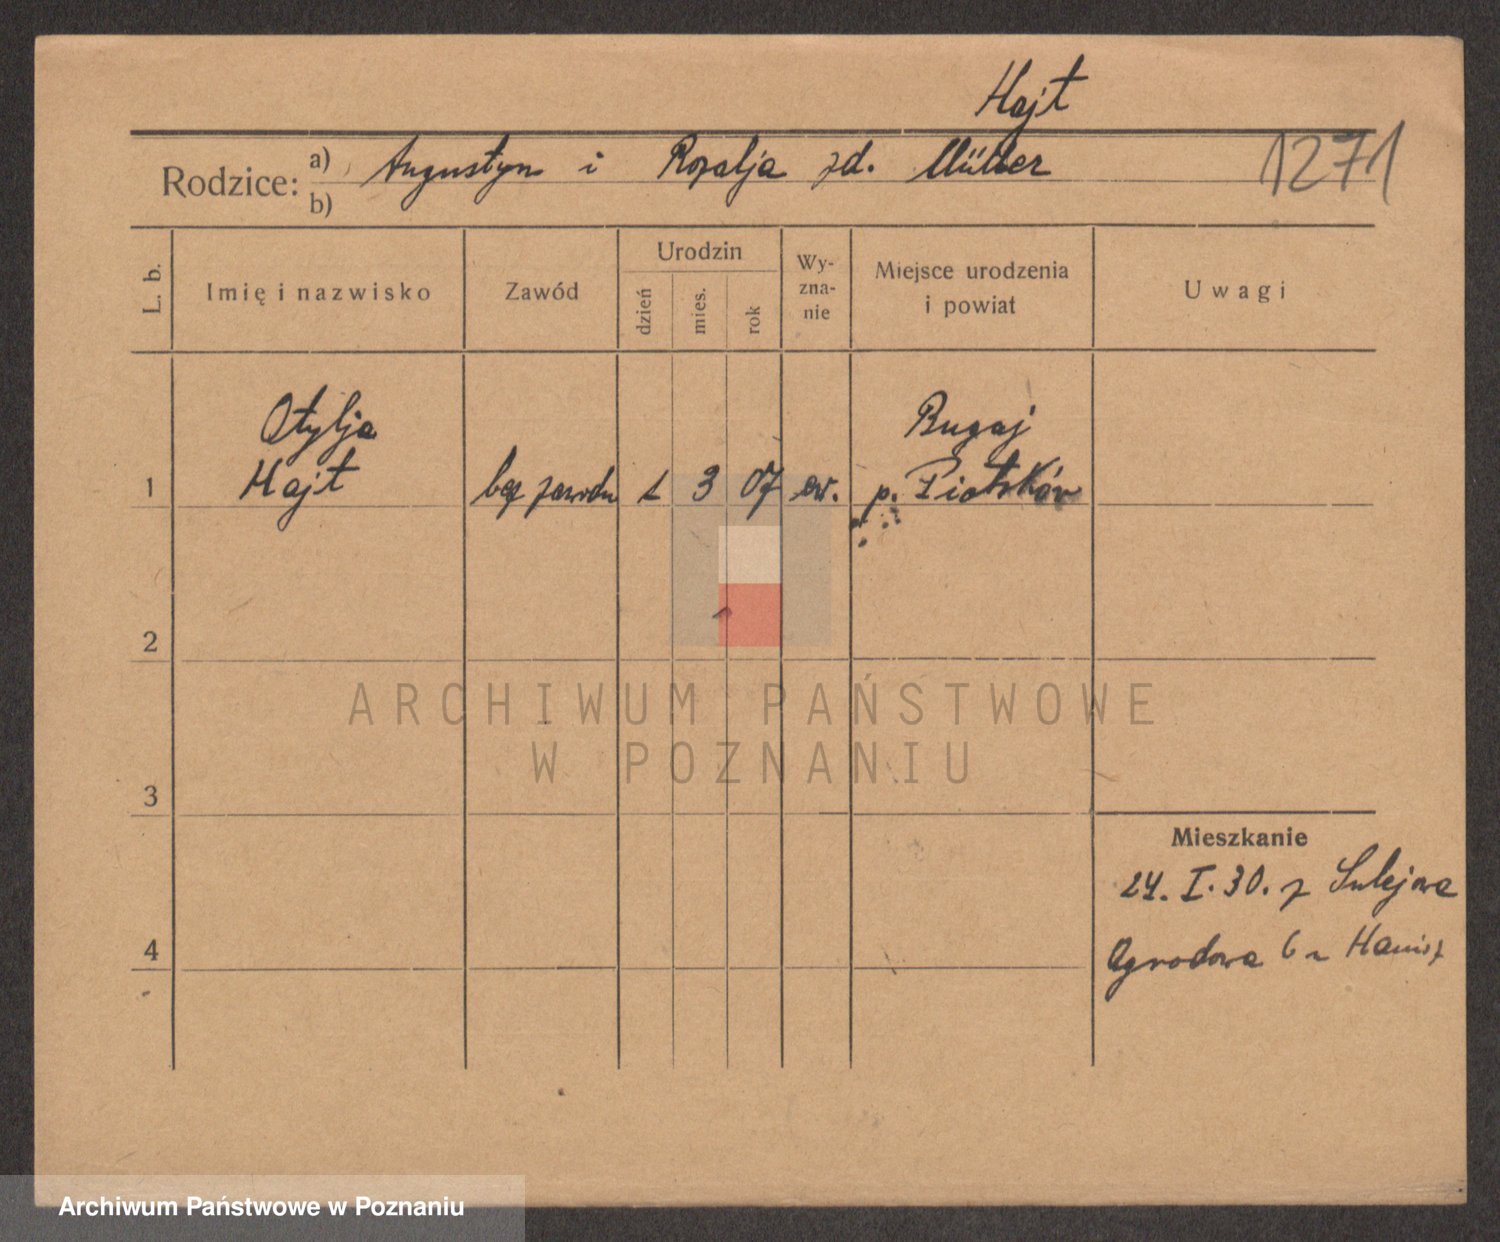 Hajt
Rodzice: a) Augustyn i Rozalja zd. Müller
b)
1271
L. b.
Imię i nazwisko
Zawód
Urodzin
dzień
mies.
rok
Wy-
zna-
nie
Miejsce urodzenia
i powiat
Uwagi
1
Otylja
Hajt
bez zawodu
1 3 07
ew.
Bugaj
p. Piotrków
2
3
4
Mieszkanie
24. I. 30. z Sulejowa
Ogrodowa 6
ARCHIWUM PAŃSTWOWE
W POZNANIU
Archiwum Państwowe w Poznaniu